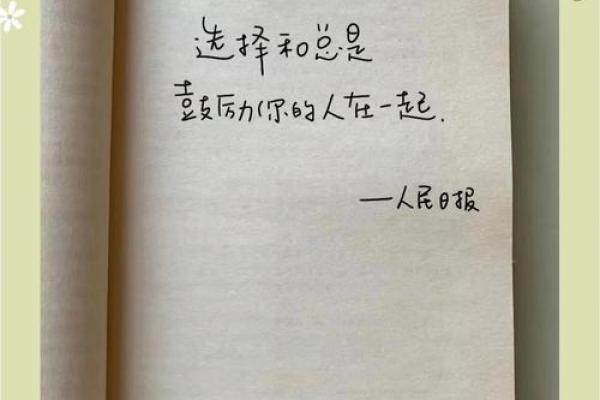 选择和总是
鼓励你的人在一起.
—人民日报